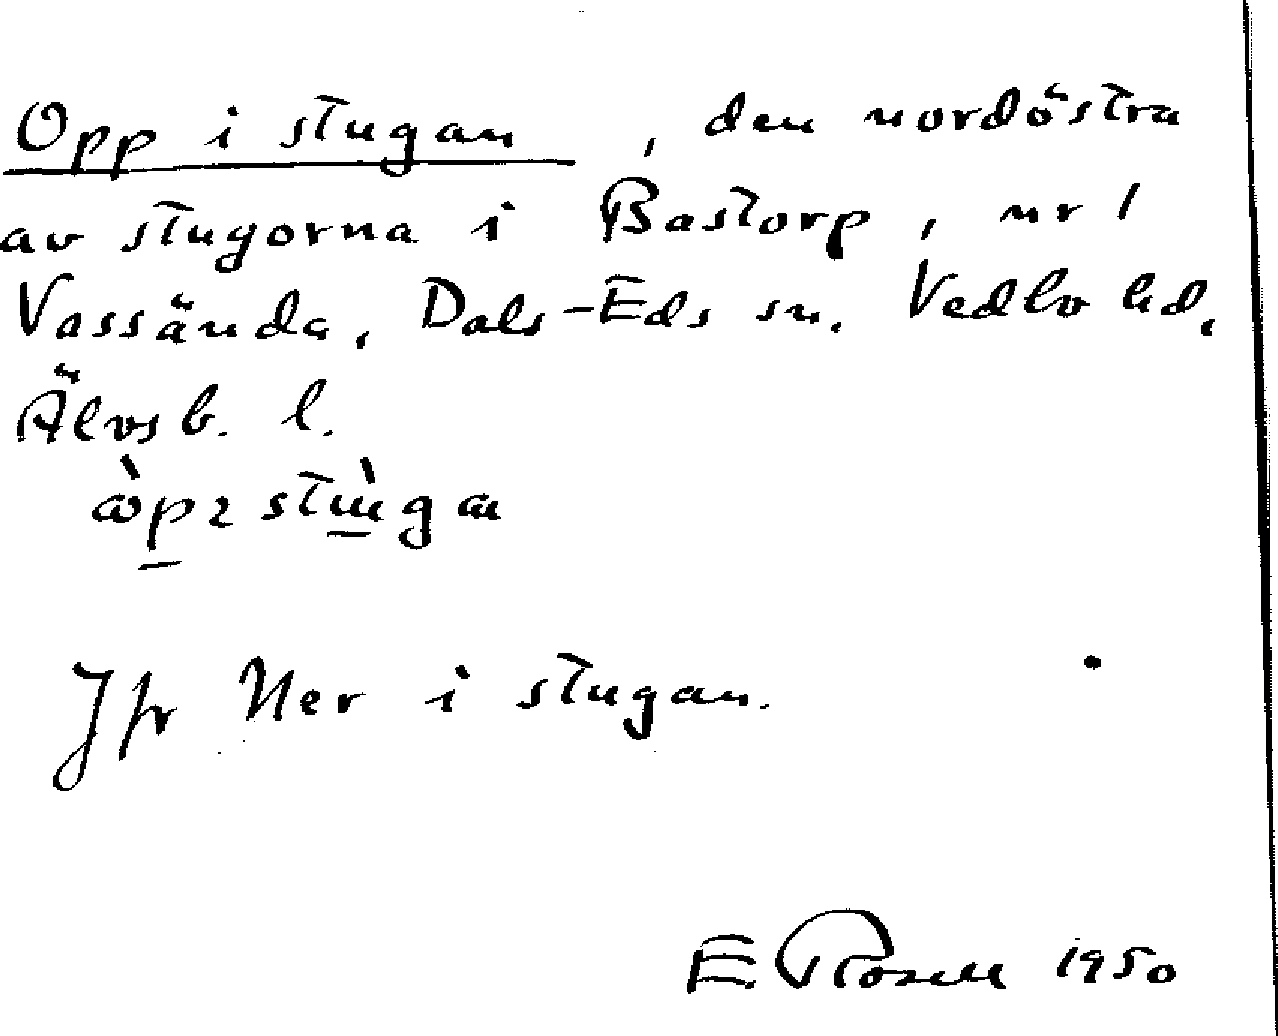 Opp i stugan, den nordöstra
av stugorna i Bastorp, nr 1
Vassända, Dals-Eds sn. Vedbo hd,
Älvsb. l.
Jfr Ner i stugan.
E. Rosell 1950